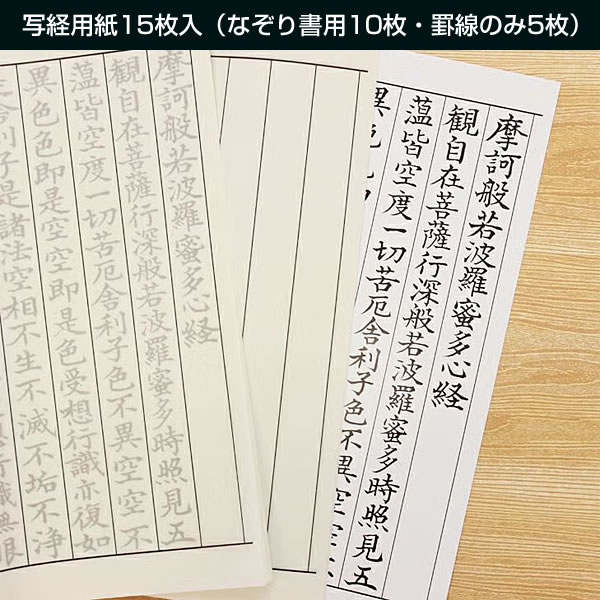 写経用紙15枚入（なぞり書用10枚・罫線のみ5枚）
摩訶般若波羅蜜多心経
観自在菩薩行深般若波羅蜜多時照見五
蘊皆空度一切苦厄舎利子色不異空空不
異色色即是空空即是色受想行識亦復如
是舎利子是諸法空相不生不滅不垢不浄
摩訶般若波羅蜜多心経
観自在菩薩行深般若波羅蜜多時照見五
蘊皆空度一切苦厄舎利子色不異空空
異色色